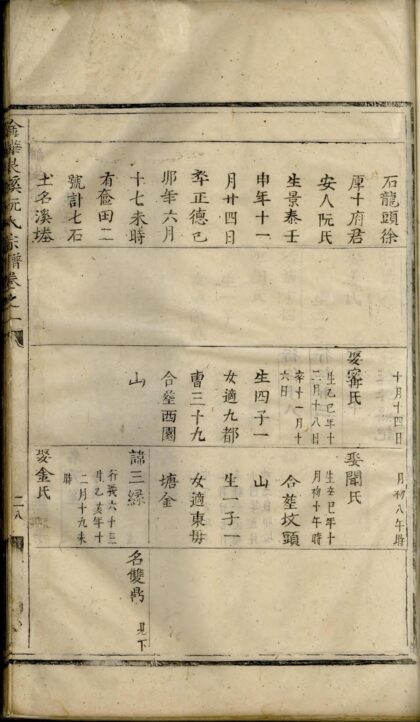 石龍頭徐
厚十府君
安人阮氏
生景泰壬
申年十一
月廿四日
卒正德己
卯年六月
十七未時
有奩田二
號計七石
土名溪塘
十月十四
娶甯氏
生乙巳年十
二月十八日
卒十一月十
六日
生四子一
女適九都
曹三十九
合塟西園
山
月初八午時
娶聞氏
生辛巳年十
月初十午時
合塟坟頭
山
生一子一
女適東毋
塘金
諱三緑
行義六十三
生乙亥年十
二月十九未
時
娶金氏
名雙鼎
見下
宗譜卷之一
二八